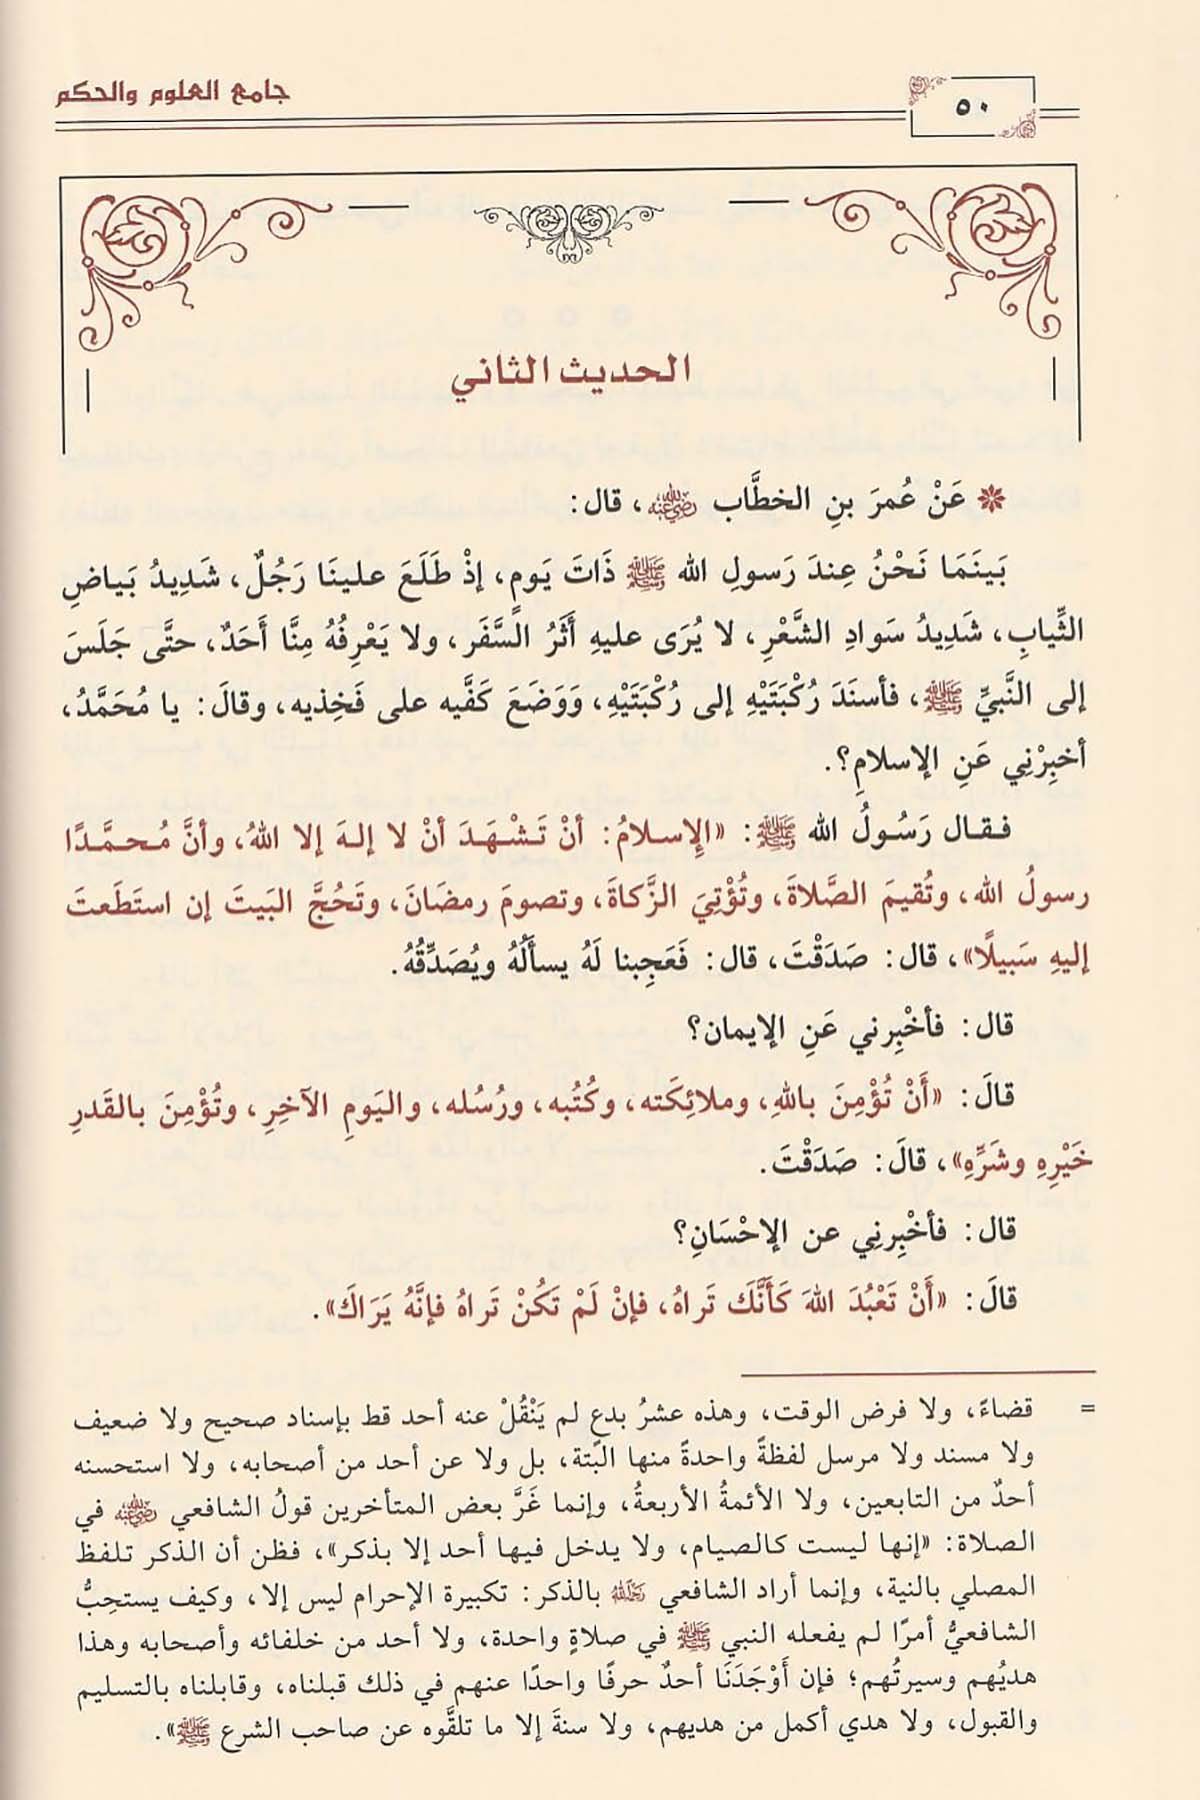 ٥٠
جامع العلوم والحكم
الحديث الثاني
عَنْ عُمرَ بنِ الخطَّاب رضي الله عنه، قال:
بَينَمَا نَحْنُ عِندَ رَسولِ الله ﷺ ذَاتَ يَومٍ، إذْ طَلَعَ علينَا رَجُلٌ، شَدِيدُ بَياضِ
الثِّيابِ، شَدِيدُ سَوادِ الشَّعْرِ، لا يُرَى عليهِ أَثَرُ السَّفَرِ، ولا يَعْرِفُهُ مِنَّا أَحَدٌ، حتَّى جَلَسَ
إلى النَّبيِّ ﷺ، فأسنَدَ رُكْبَتَيْهِ إلى رُكْبَتَيْهِ، وَوَضَعَ كَفَّيه على فَخِذيه، وقالَ: يا مُحَمَّدُ،
أخبِرْنِي عَنِ الإسلامِ؟.
فـقـال رَسُـولُ الله ﷺ: «الإِسـلامُ: أنْ تَـشْـهَـدَ أنْ لا إلـهَ إلا اللهُ، وأنَّ مُـحـمَّـدًا
رسولُ الله، وتُقيمَ الصَّلاةَ، وتُؤْتِيَ الزَّكاةَ، وتصومَ رمضَانَ، وتَحُجَّ البَيتَ إن استَطَعتَ
إليهِ سَبيلًا»، قال: صَدَقْتَ، قال: فَعَجِبنا لَهُ يسأَلُهُ ويُصَدِّقُهُ.
قال: فأخْبِرني عَنِ الإيمان؟
قالَ: «أَنْ تُؤْمِنَ باللهِ، وملائِكَته، وكُتُبه، ورُسُله، واليَومِ الآخِرِ، وتُؤْمِنَ بالقَدرِ
خَيْرِهِ وشَرِّهِ»، قالَ: صَدَقْتَ.
قال: فأخْبِرنِي عن الإحْسَانِ؟
قالَ: «أَنْ تَعْبُدَ اللهَ كَأَنَّكَ تَراهُ، فإنْ لَمْ تَكُنْ تَراهُ فإنَّهُ يَرَاكَ».
= قضاءً، ولا فرض الوقت، وهذه عشرُ بدعٍ لم يَنْقُلْ عنه أحد قط بإسناد صحيح ولا ضعيف
ولا مسند ولا مرسل لفظةً واحدةً منها البتة، بل ولا عن أحد من أصحابه، ولا استحسنه
أحدٌ من التابعين، ولا الأئمةُ الأربعةُ، وإنما غَرَّ بعض المتأخرين قولُ الشافعي رضي الله عنه في
الصلاة: «إنها ليست كالصيام، ولا يدخل فيها أحد إلا بذكر»، فظن أن الذكر تلفظ
المصلي بالنية، وإنما أراد الشافعي رحمه الله بالذكر: تكبيرة الإحرام ليس إلا، وكيف يستحِبُّ
الشافعيُّ أمرًا لم يفعله النبي ﷺ في صلاةٍ واحدة، ولا أحد من خلفائه وأصحابه وهذا
هديُهم وسيرتُهم؛ فإن أَوْجَدَنَا أحدٌ حرفًا واحدًا عنهم في ذلك قبلناه، وقابلناه بالتسليم
والقبول، ولا هدي أكمل من هديهم، ولا سنةَ إلا ما تلقَّوه عن صاحب الشرع ﷺ».